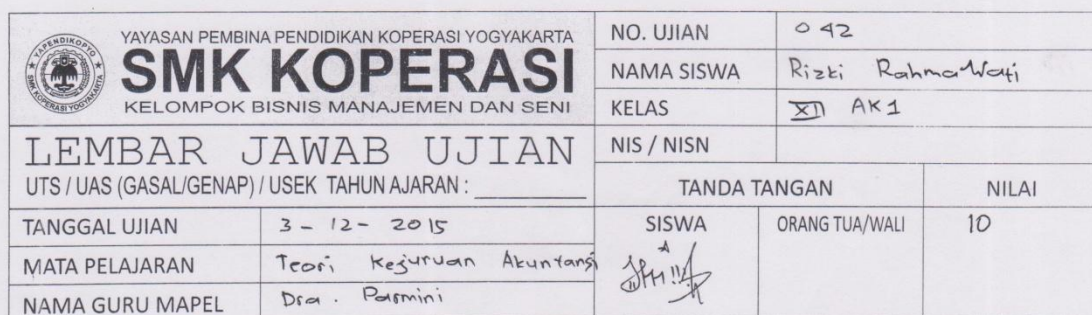 YAPENDIKOPYO
SMK KOPERASI YOGYAKARTA
YAYASAN PEMBINA PENDIDIKAN KOPERASI YOGYAKARTA
SMK KOPERASI
KELOMPOK BISNIS MANAJEMEN DAN SENI
LEMBAR JAWAB UJIAN
UTS / UAS (GASAL/GENAP) / USEK TAHUN AJARAN :
TANGGAL UJIAN 3 - 12 - 2015
MATA PELAJARAN Teori Kejuruan Akuntansi
NAMA GURU MAPEL Dra. Parmini
NO. UJIAN 042
NAMA SISWA Rizki Rahmawati
KELAS XII AK1
NIS / NISN
TANDA TANGAN NILAI
SISWA ORANG TUA/WALI 10